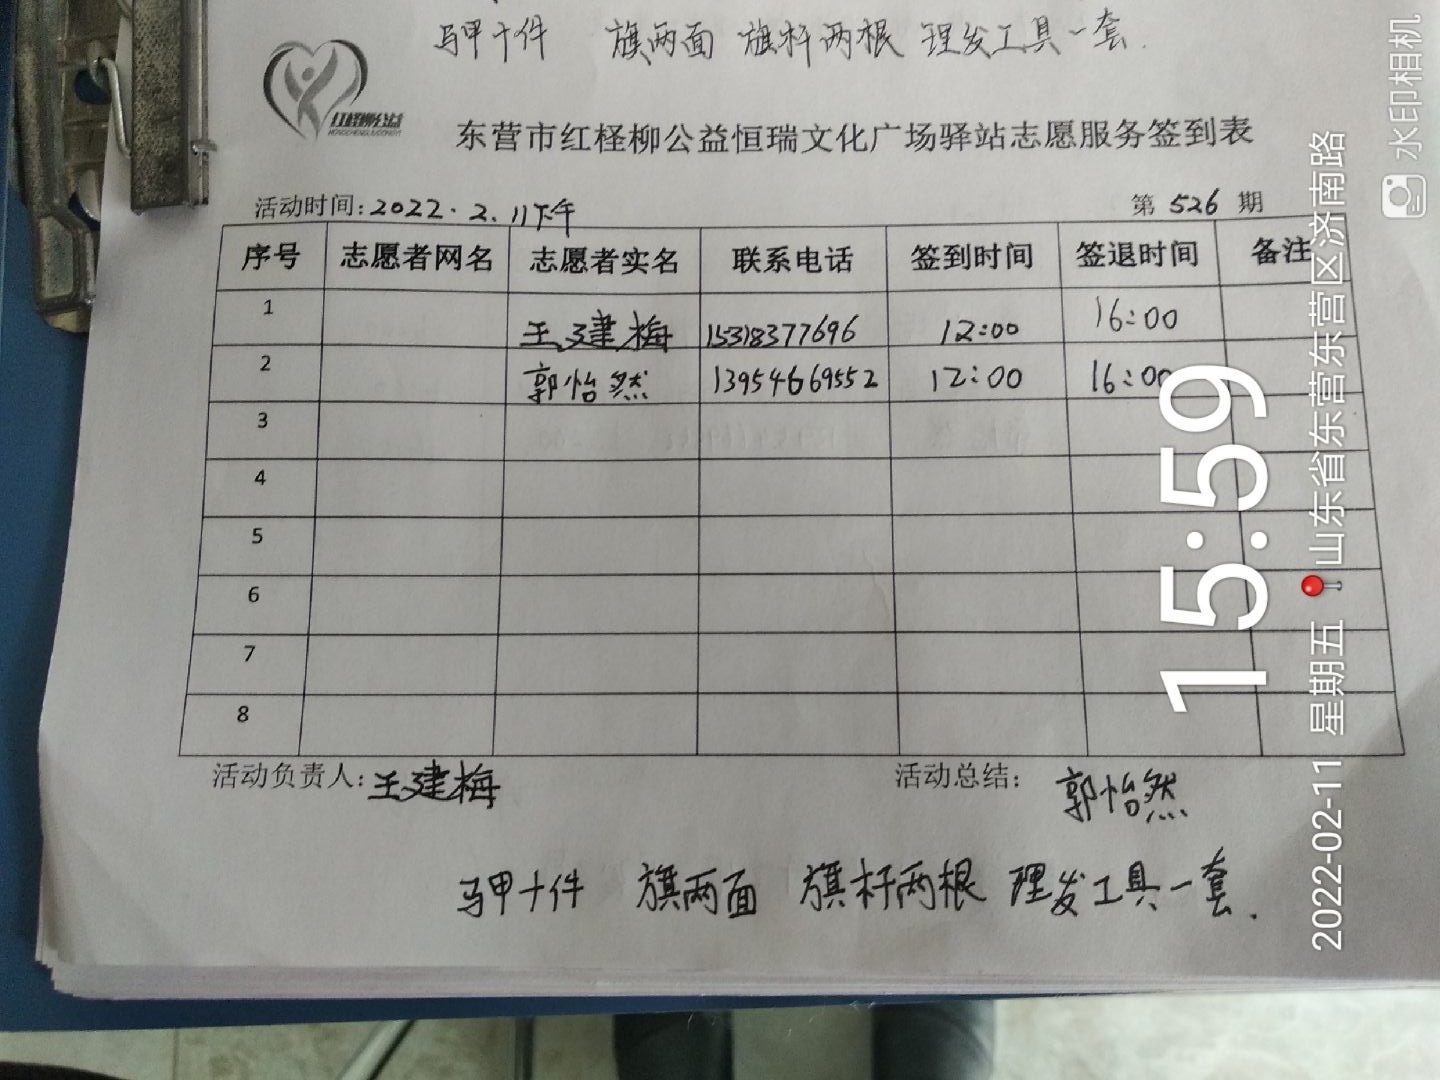 马甲十件 旗两面 旗杆两根 理发工具一套.
红柽柳公益
HONGCHENGLIUGONGYI
东营市红柽柳公益恒瑞文化广场驿站志愿服务签到表
活动时间:2022.2.11下午 第 526 期
序号 志愿者网名 志愿者实名 联系电话 签到时间 签退时间 备注
1 王建梅 15318377696 12:00 16:00
2 郭怡然 13954669552 12:00 16:00
3
4
5
6
7
8
活动负责人:王建梅 活动总结: 郭怡然
马甲十件 旗两面 旗杆两根 理发工具一套.
15:59
2022-02-11 星期五 山东省东营东营区济南路
水印相机